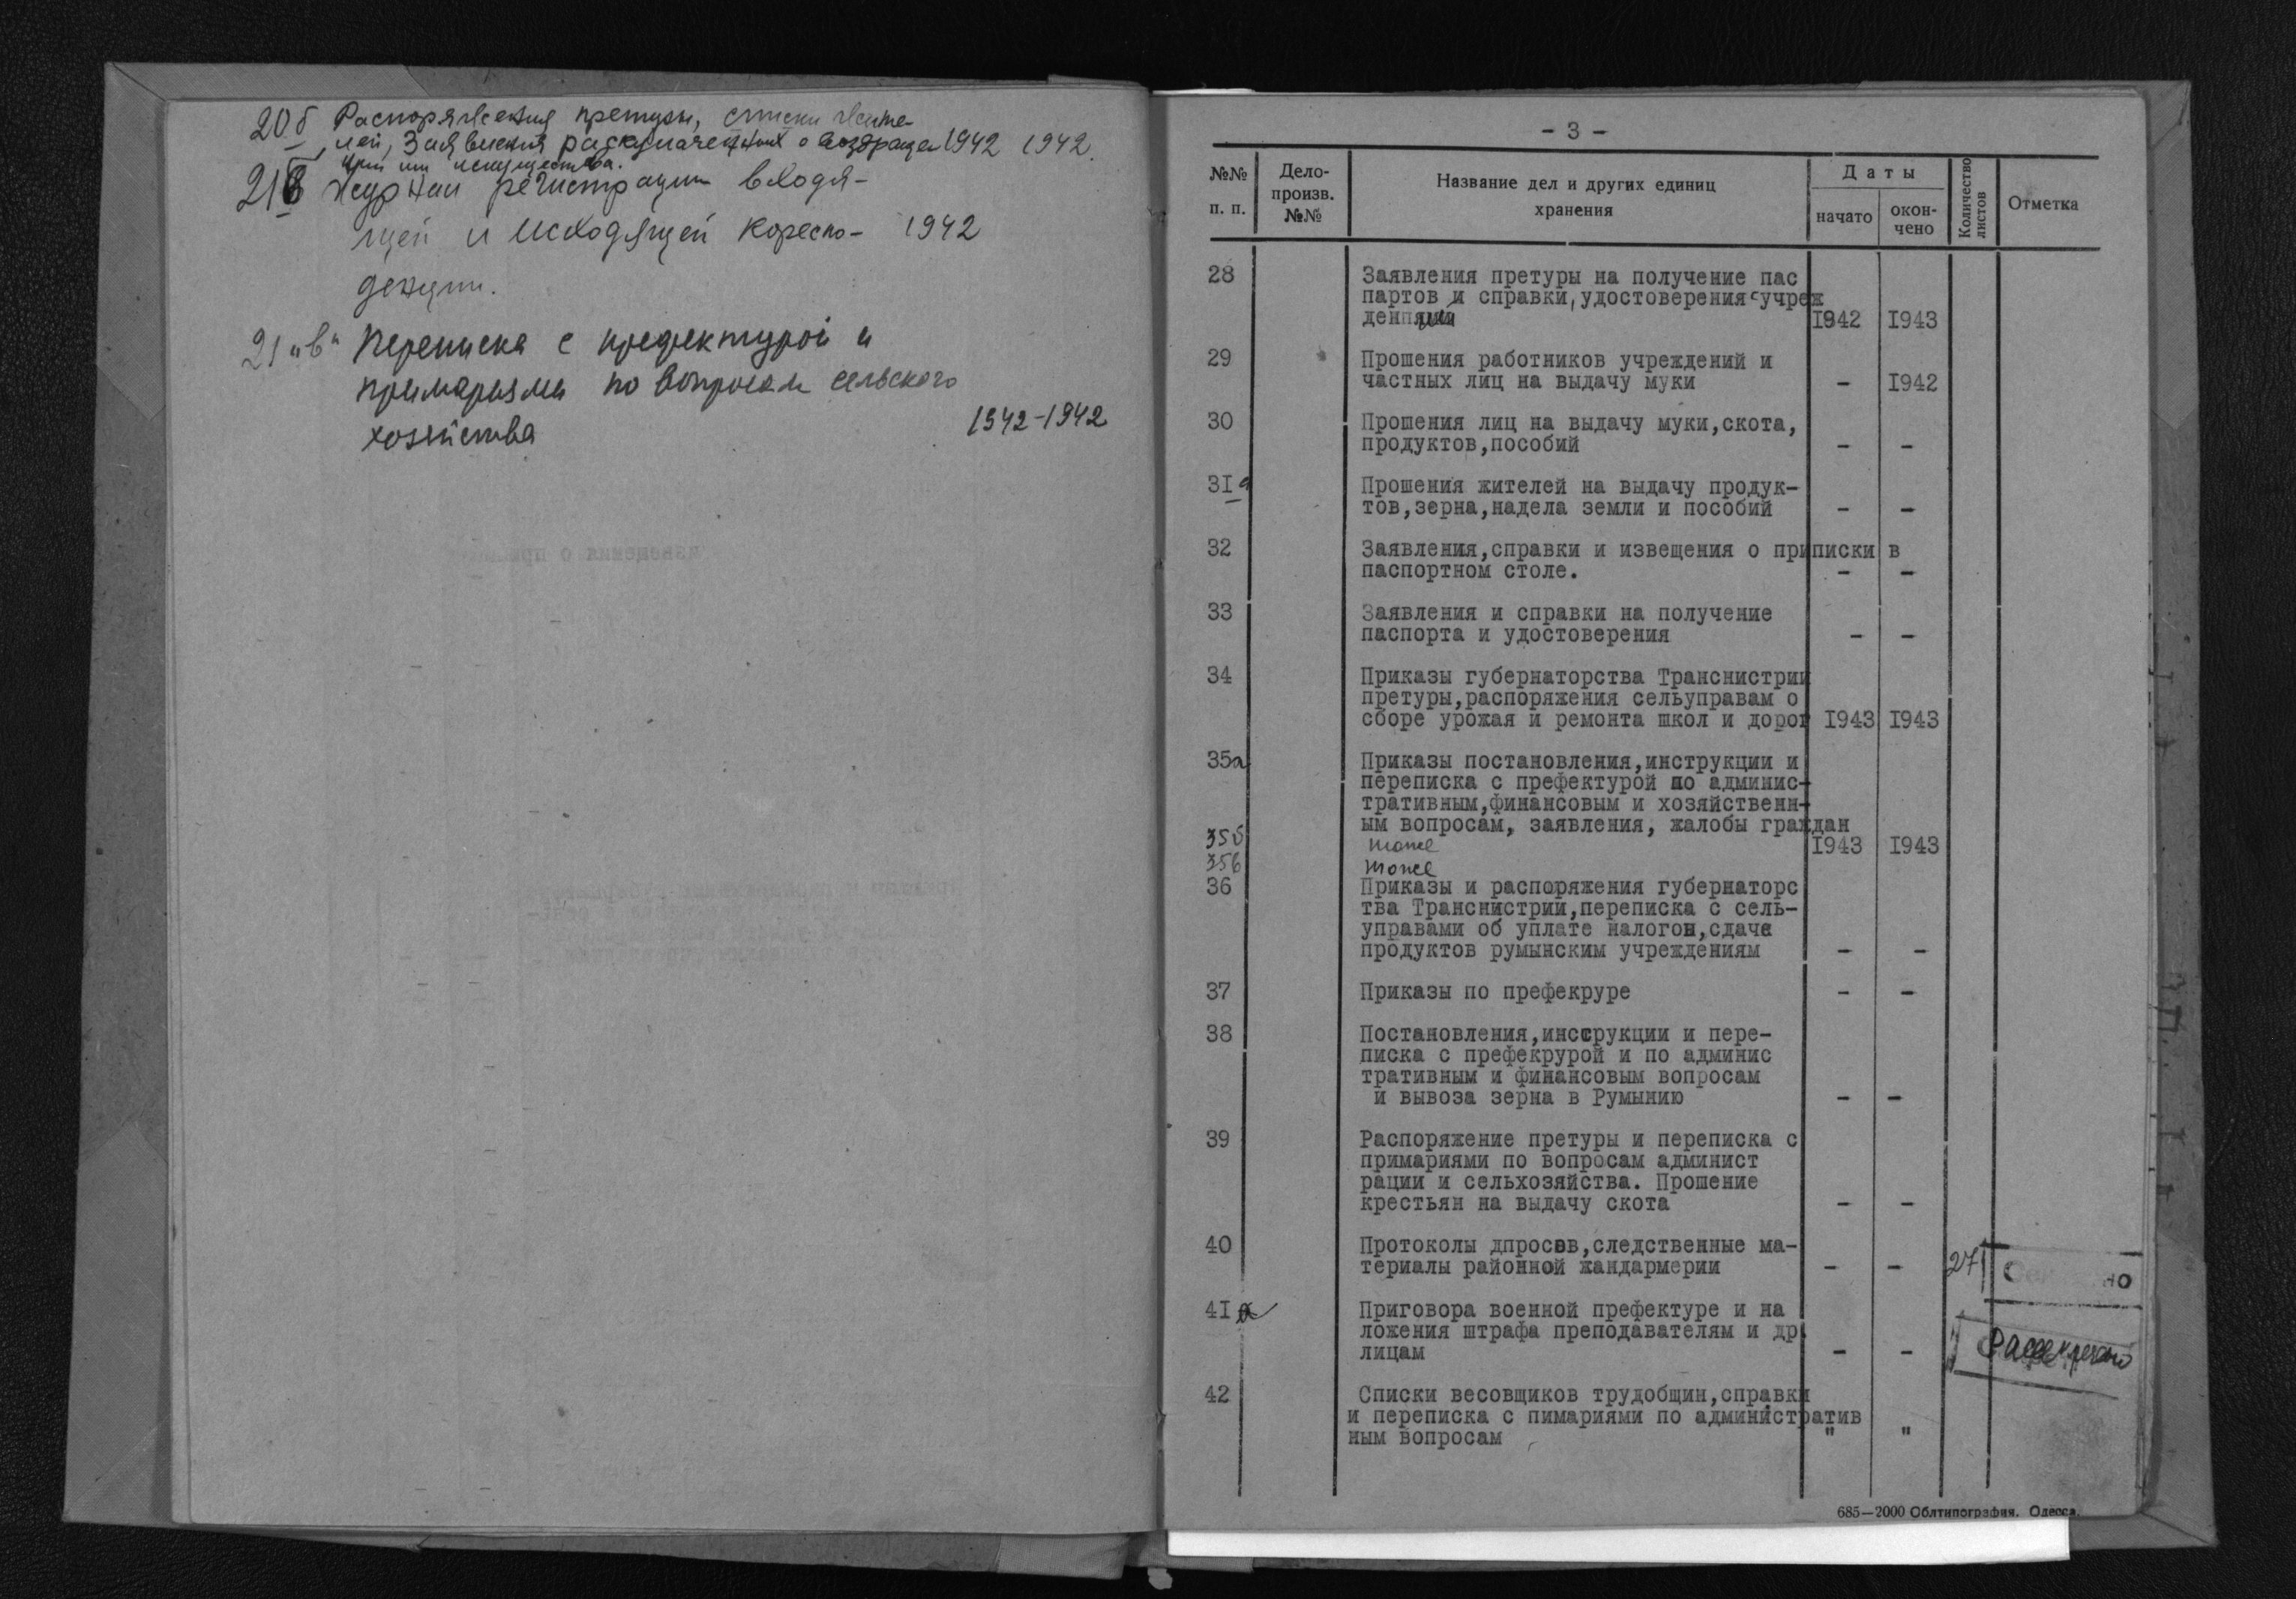 20б Распоряжения претуры, списки жите-
лей, Заявления раскулаченных о возвраще 1942 1942.
нии им имущества.
21б Журнал регистрации входя-
щей и исходящей кореспо- 1942
денции.
21 "в" Переписка с префектурой и
примариями по вопросам сельского
хозяйства 1942-1942
- 3 -
№№ п. п.
Дело-произв. №№
Название дел и других единиц хранения
Даты
начато
окон-чено
Количество листов
Отметка
28 Заявления претуры на получение пас
партов и справки, удостоверения с учреж
1942 1943
29 Прошения работников учреждений и
частных лиц на выдачу муки - 1942
30 Прошения лиц на выдачу муки,скота,
продуктов,пособий - -
31а Прошения жителей на выдачу продук-
тов,зерна,надела земли и пособий - -
32 Заявления,справки и извещения о приписки в
паспортном столе. - -
33 Заявления и справки на получение
паспорта и удостоверения - -
34 Приказы губернаторства Транснистрии
претуры,распоряжения сельуправам о
сборе урожая и ремонта школ и дорог 1943 1943
35а Приказы постановления,инструкции и
переписка с префектурой по админис-
тративным,финансовым и хозяйственн-
ым вопросам, заявления, жалобы граждан
35б тоже 1943 1943
35в тоже
36 Приказы и распоряжения губернаторс
тва Транснистрии,переписка с сель-
управами об уплате налогов,сдаче
продуктов румынским учреждениям - -
37 Приказы по префекруре - -
38 Постановления,инструкции и пере-
писка с префекрурой и по админис
тративным и финансовым вопросам
и вывоза зерна в Румынию - -
39 Распоряжение претуры и переписка с
примариями по вопросам админист
рации и сельхозяйства. Прошение
крестьян на выдачу скота - -
40 Протоколы дпросов,следственные ма-
териалы районной жандармерии - - 271
41а Приговора военной префектуре и на
ложения штрафа преподавателям и др.
лицам - - Рассекречено
42 Списки весовщиков трудобщин,справки
и переписка с пимариями по административ
ным вопросам " "
685—2000 Облтипография. Одесса.